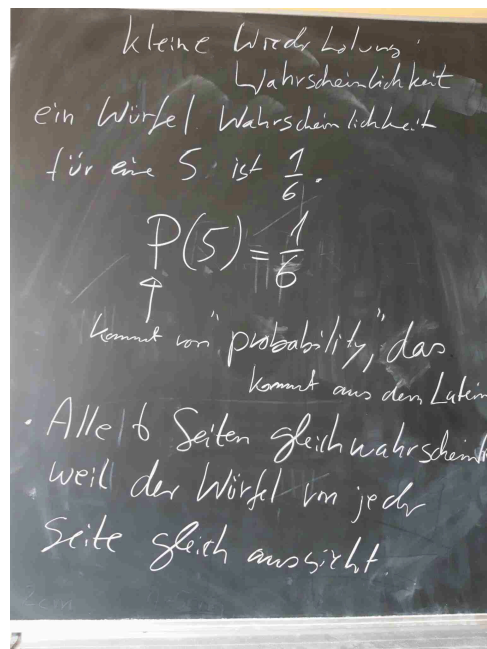 kleine Wiederholung:
Wahrscheinlichkeit
ein Würfel. Wahrscheinlichkeit
für eine 5 ist 1/6.
P(5) = 1/6
kommt von "probability", das
kommt aus dem Latein
• Alle 6 Seiten gleichwahrscheinli
weil der Würfel von jeder
Seite gleich aussieht.